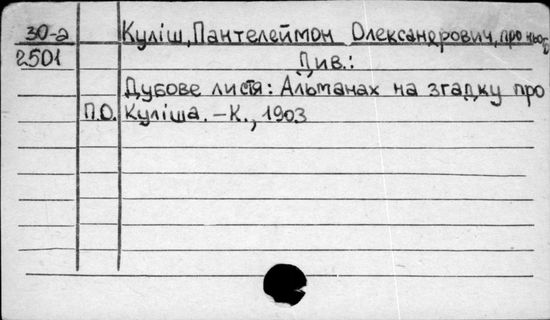 30-а Куліш, Пантелеймон Олександрович, про нього
2501 Див.:
Дубове листя: Альманах на згадку про
П.О. Куліша. – К., 1903